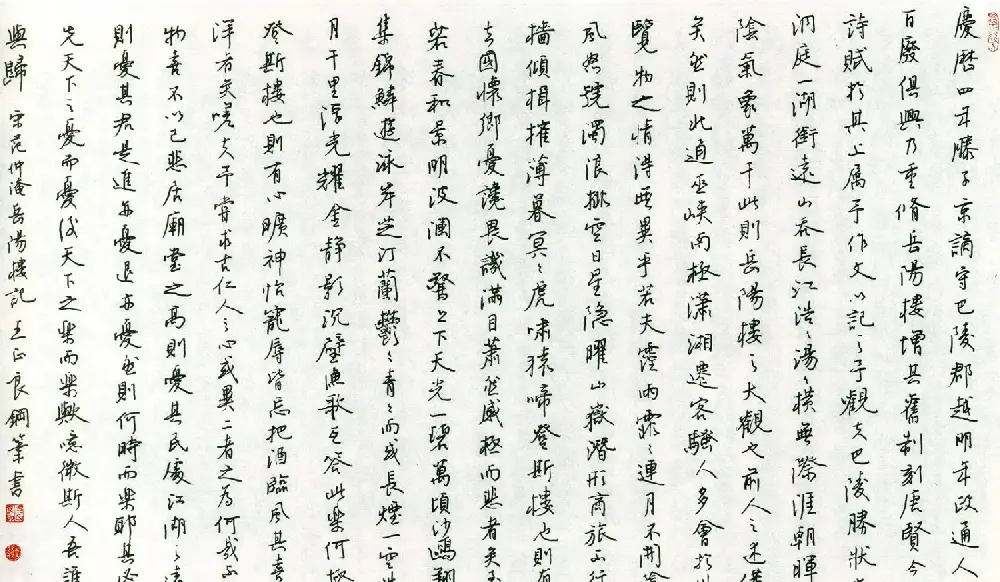 慶歷四年滕子京謫守巴陵郡越明年政通人
百廢俱興乃重脩岳陽樓增其舊制刻唐賢今
詩賦於其上屬予作文以記之予觀夫巴陵勝狀
洞庭一湖銜遠山吞長江浩々湯々橫無際涯朝暉
陰氣象萬千此則岳陽樓之大觀也前人之述備
矣然則北通巫峽南極瀟湘遷客騷人多會於
覽物之情得無異乎若夫霪雨霏々連月不開
風怒號濁浪排空日星隱曜山嶽潛形商旅不行
檣傾楫摧薄暮冥々虎嘯猿啼登斯樓也則有
去國懷鄉憂讒畏譏滿目蕭然感極而悲者矣至
若春和景明波瀾不驚上下天光一碧萬頃沙鷗翔
集錦鱗遊泳岸芷汀蘭鬱々青々而或長煙一空
月千里浮光耀金靜影沉璧漁歌互答此樂何極
登斯樓也則有心曠神怡寵辱皆忘把酒臨風其喜
洋者矣嗟夫予嘗求古仁人之心或異二者之為何哉不
物喜不以己悲居廟堂之高則憂其民處江湖之遠
則憂其君是進亦憂退亦憂然則何時而樂耶其必
先天下之憂而憂後天下之樂而樂歟噫微斯人吾誰
與歸 宋范仲淹岳陽樓記 王正良鋼筆書